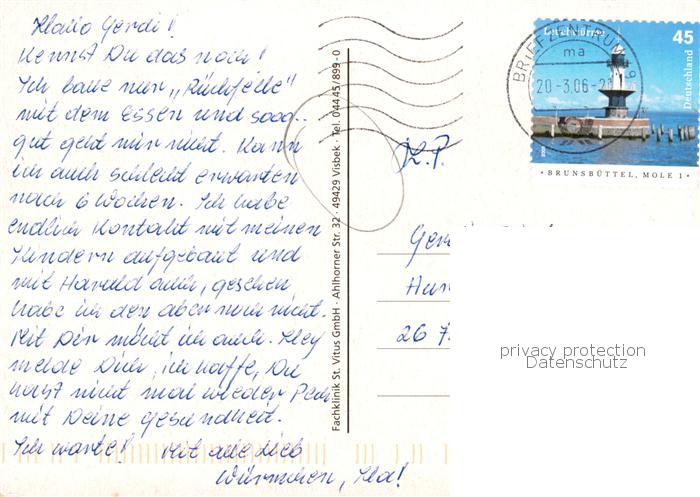 Hallo Gerdi!
Kennst Du das noch!
Ich baue nur „Rückfälle"
mit dem Essen und sooo..
gut geht mir nicht. Kann
ich auch schlecht erwarten
nach 6 Wochen. Ich habe
endlich Kontakt mit meinen
Kindern aufgebaut und
mit Harald auch, gesehen
habe ich den aber noch nicht.
Mit Dir möcht ich auch. Hey
melde Dich, ich hoffe, Du
hast nicht mal wieder Pech
mit Deine gesundheit.
Ich warte! Mit alle lieb
Würmchen,
Fachklinik St. Vitus GmbH · Ahlhorner Str. 32 · 49429 Visbek · Tel. 04445/899-0
Leuchttürme
45
Deutschland
BRUNSBÜTTEL, MOLE 1
BRIEFZENTRUM
ma
20-3.06-2
Ger
26 7
privacy protection
Datenschutz